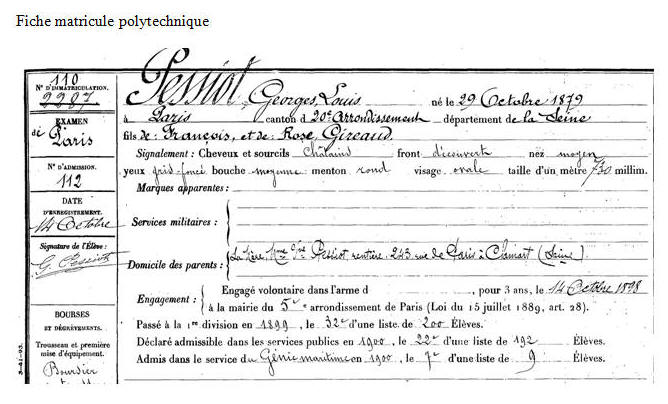 Fiche matricule polytechnique
110
N° D'IMMATRICULATION.
2287.
EXAMEN
de Paris
N° D'ADMISSION.
112
DATE
D'ENREGISTREMENT.
14 Octobre
Signature de l'Élève :
G. Pessiot
BOURSES
ET DÉGRÈVEMENTS.
Trousseau et première
mise d'équipement.
Boursier
Pessiot, Georges, Louis né le 29 Octobre 1879
à Paris canton d 20e arrondissement département de la Seine
fils de François, et de Rose, Gireaud.
Signalement : Cheveux et sourcils châtaind front découvert nez moyen
yeux gris-foncé bouche moyenne menton rond visage ovale taille d'un mètre 730 millim.
Marques apparentes :
Services militaires :
Domicile des parents : La Mère, Mme Vve Pessiot rentière 243 rue de Paris à Clamart (Seine)
Engagement : Engagé volontaire dans l'arme d , pour 3 ans, le 14 Octobre 1898
à la mairie du 5e arrondissement de Paris (Loi du 15 juillet 1889, art. 28).
Passé à la 1re division en 1899, le 32e d'une liste de 200 Élèves.
Déclaré admissible dans les services publics en 1900, le 22e d'une liste de 192 Élèves.
Admis dans le service du Génie maritime en 1900, le 7e d'une liste de 9 Élèves.